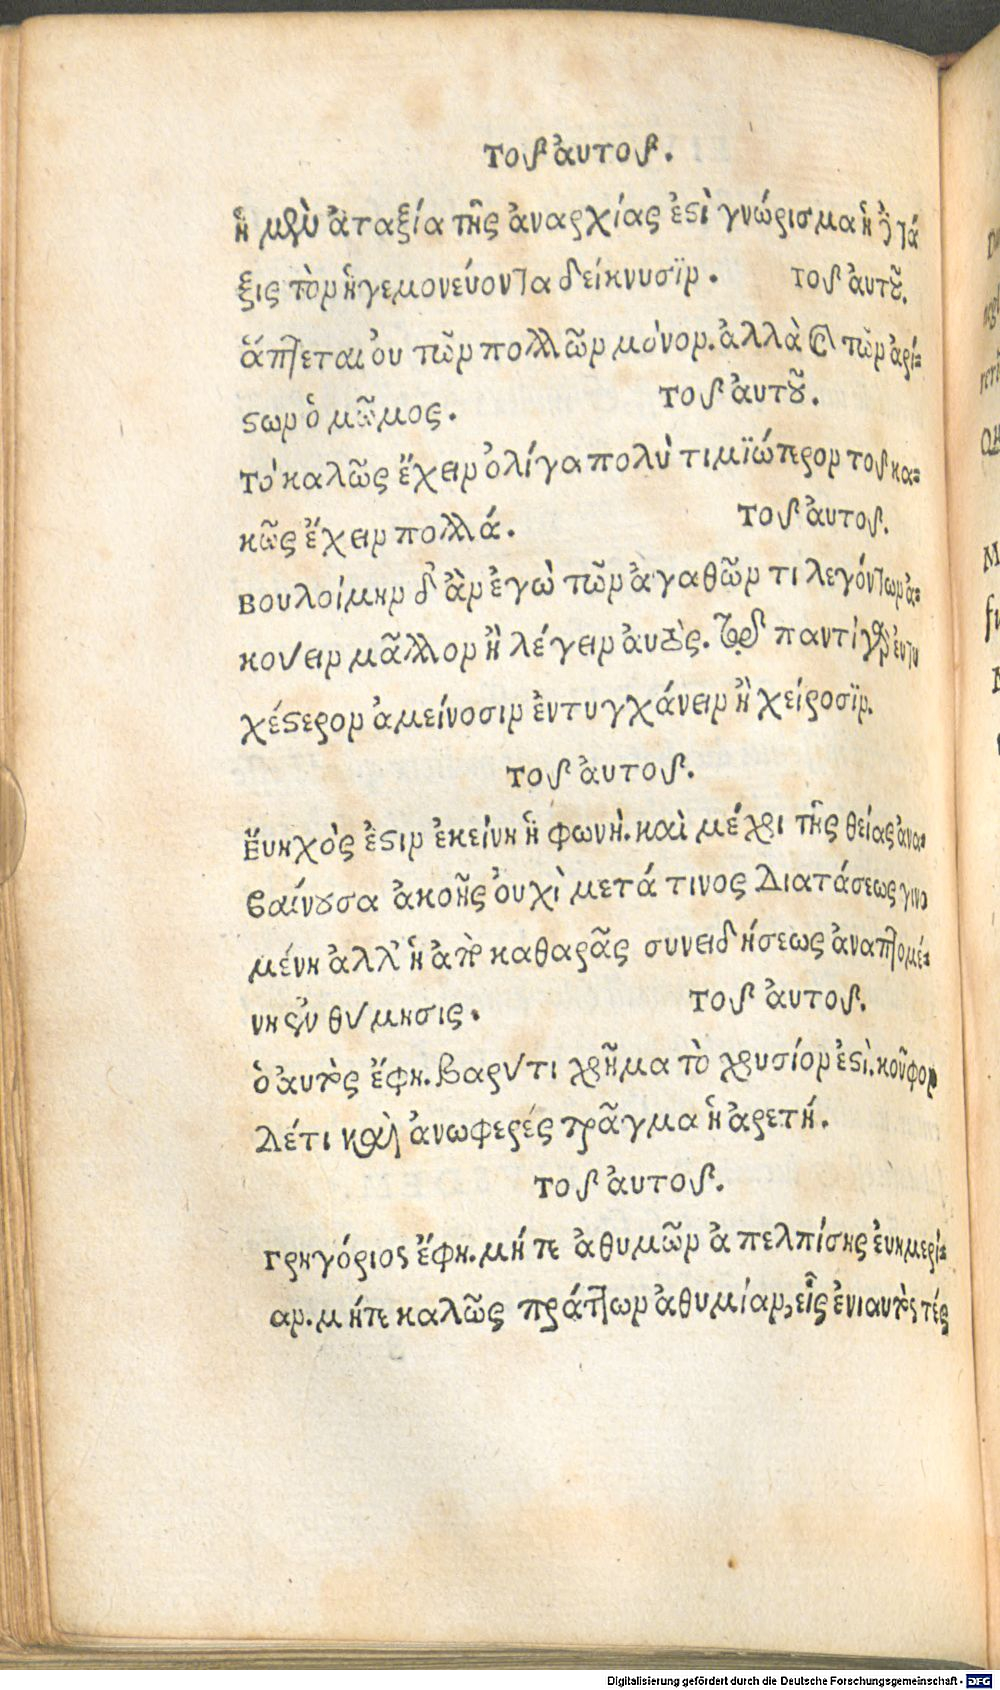 τοῦ ἀυτοῦ.
ἡ μὲν ἀταξία τῆς ἀναρχίας ἐστὶ γνώρισμα ἡ δὲ τά
ξις τὸν ἡγεμονεύοντα δείκνυσϊν. τοῦ ἀυτοῦ.
ἅπτεται ὀυ τῶν πολλῶν μόνον. ἀλλὰ καὶ τῶν ἀρί=
στων ὁ μῶμος. τοῦ ἀυτοῦ.
τὸ καλῶς ἔχειν ὀλίγα πολὺ τιμϊώτερον τοῦ κα=
κῶς ἔχειν πολλά. τοῦ ἀυτοῦ.
βουλοίμην δ' ἂν ἐγὼ τῶν ἀγαθῶν τι λεγόντων ἀ=
κούειν μᾶλλον ἢ λέγειν ἀυτὸς. παντὶ γὰρ ἐντυ
χέστερον ἀμείνοσιν ἐντυγχάνειν ἢ χείροσϊν.
τοῦ ἀυτοῦ.
Ἔυηχός ἐστιν ἐκείνη ἡ φωνὴ. καὶ μέχρι τῆς θείας ἀνα=
βαίνουσα ἀκοῆς ὀυχὶ μετά τινος διατάσεως γινο
μένη ἀλλ' ἡ ἀπὸ καθαρᾶς συνειδήσεως ἀναπτομέ=
νη ἐνθύμησις. τοῦ ἀυτοῦ.
ὁ ἀυτὸς ἔφη. βαρύ τι χρῆμα τὸ χρυσίον ἐστὶ. κοῦφον
δέ τι καὶ ἀνωφερές πρᾶγμα ἡ ἀρετή.
τοῦ ἀυτοῦ.
Γρηγόριος ἔφη. μήτε ἀθυμῶν ἀπελπίσης ἐυημερί=
αν. μήτε καλῶς πράττων ἀθυμίαν, εἷς ἐνιαυτὸς τές
Digitalisierung gefördert durch die Deutsche Forschungsgemeinschaft - DFG